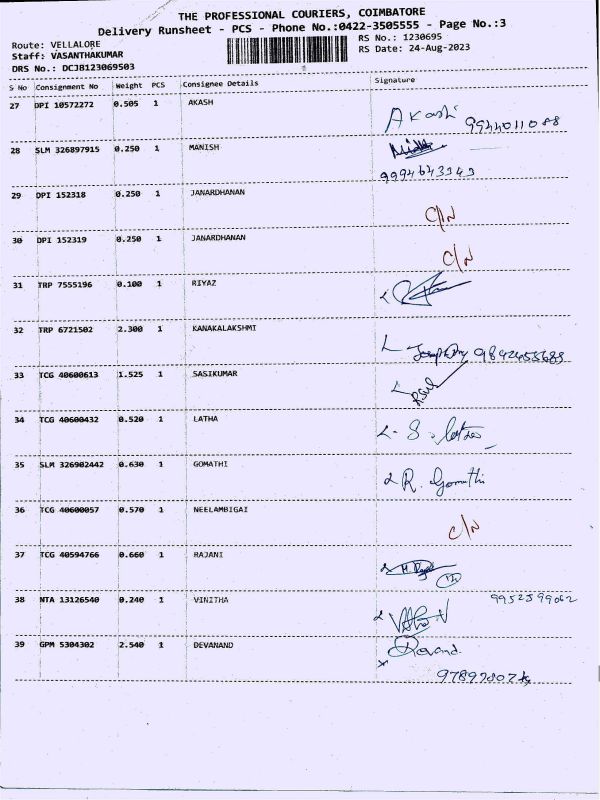 THE PROFESSIONAL COURIERS, COIMBATORE
Delivery Runsheet - PCS - Phone No.:0422-3505555 - Page No.:3
Route: VELLALORE
RS No.: 1230695
Staff: VASANTHAKUMAR
RS Date: 24-Aug-2023
DRS No.: DCJ8123069503
S No Consignment No Weight PCS Consignee Details Signature
27 DPI 10572272 0.505 1 AKASH
Akash 9944011088
28 SLM 326897915 0.250 1 MANISH
9994643343
29 DPI 152318 0.250 1 JANARDHANAN
C/N
30 DPI 152319 0.250 1 JANARDHANAN
C/N
31 TRP 7555196 0.100 1 RIYAZ
32 TRP 6721502 2.300 1 KANAKALAKSHMI
33 TCG 40600613 1.525 1 SASIKUMAR
34 TCG 40600432 0.520 1 LATHA
S. latha
35 SLM 326902442 0.630 1 GOMATHI
R. Gomathi
36 TCG 40600057 0.570 1 NEELAMBIGAI
C/N
37 TCG 40594766 0.660 1 RAJANI
38 NTA 13126540 0.240 1 VINITHA
39 GPM 5304302 2.540 1 DEVANAND